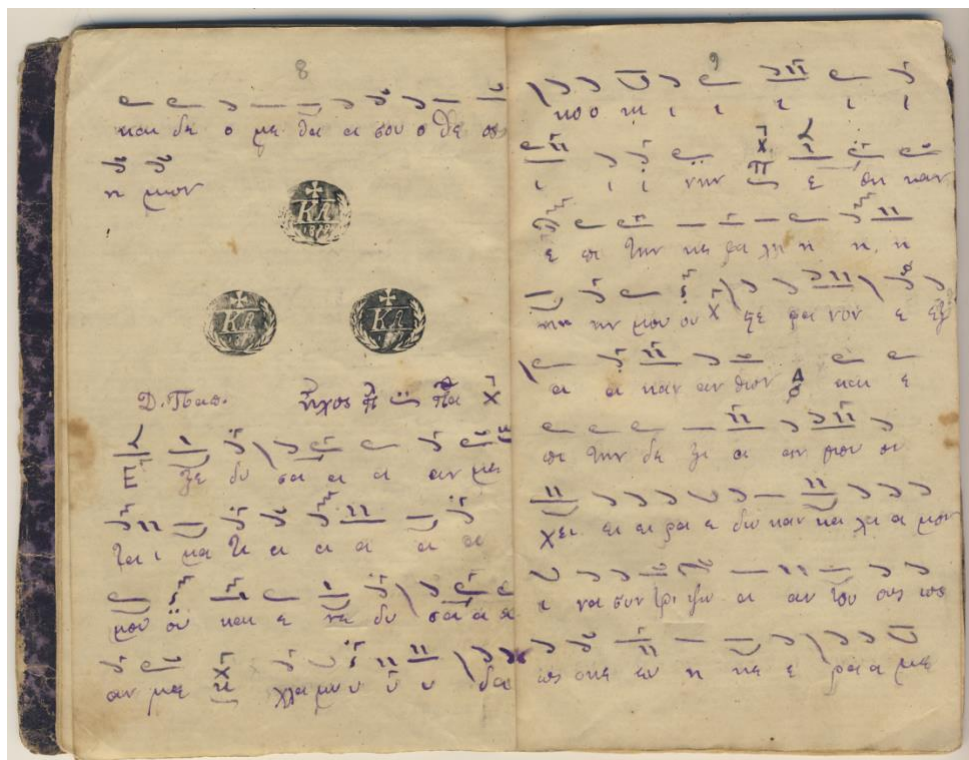 8
και δε ο με θα α σου ο θε ος
η μων
ΚΛ
ΚΛ
ΚΛ
Д. Παπ. ἦχος Πα
Ε ξε δυ σα αι αι αν με
τα ι μα τι αι αι α αι α
μου ου και ε νε δυ σα α α
αν με χλα μυ υ υ υ δα
9
κοο κι ι ι ι ι ι
ι ι ι νην ε θη καν
ε πι την κε φα λη η η η
ην μου ου στε φα νον ε εξ
α α καν αν θων και ε
πι την δε ξι α αν μου ου
χει ει ει ρα ε δω καν κα λα α μον
ι να συν τρι ψω αι αν του ους ως
ως σκε ευ η κε ε ρα α με